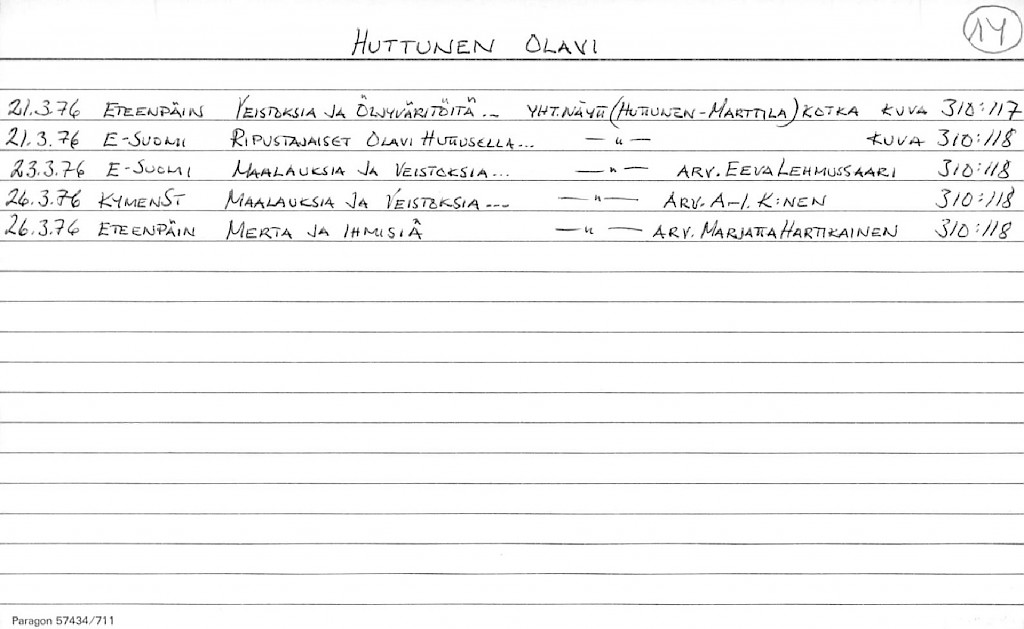 14
HUTTUNEN OLAVI
21.3.76 ETEENPÄIN VEISTOKSIA JA ÖLJYVÄRITÖITÄ... YHT.NÄYTT (HUTTUNEN-MARTTILA) KOTKA KUVA 310:117
21.3.76 E-SUOMI RIPUSTAJAISET OLAVI HUTTUSELLA... —"— KUVA 310:118
23.3.76 E-SUOMI MAALAUKSIA JA VEISTOKSIA... —"— ARV. EEVA LEHMUSSAARI 310:118
26.3.76 KYMENST MAALAUKSIA JA VEISTOKSIA --- —"— ARV. A-L K:NEN 310:118
26.3.76 ETEENPÄIN MERTA JA IHMISIÄ —"— ARV. MARJATTA HARTIKAINEN 310:118
Paragon 57434/711